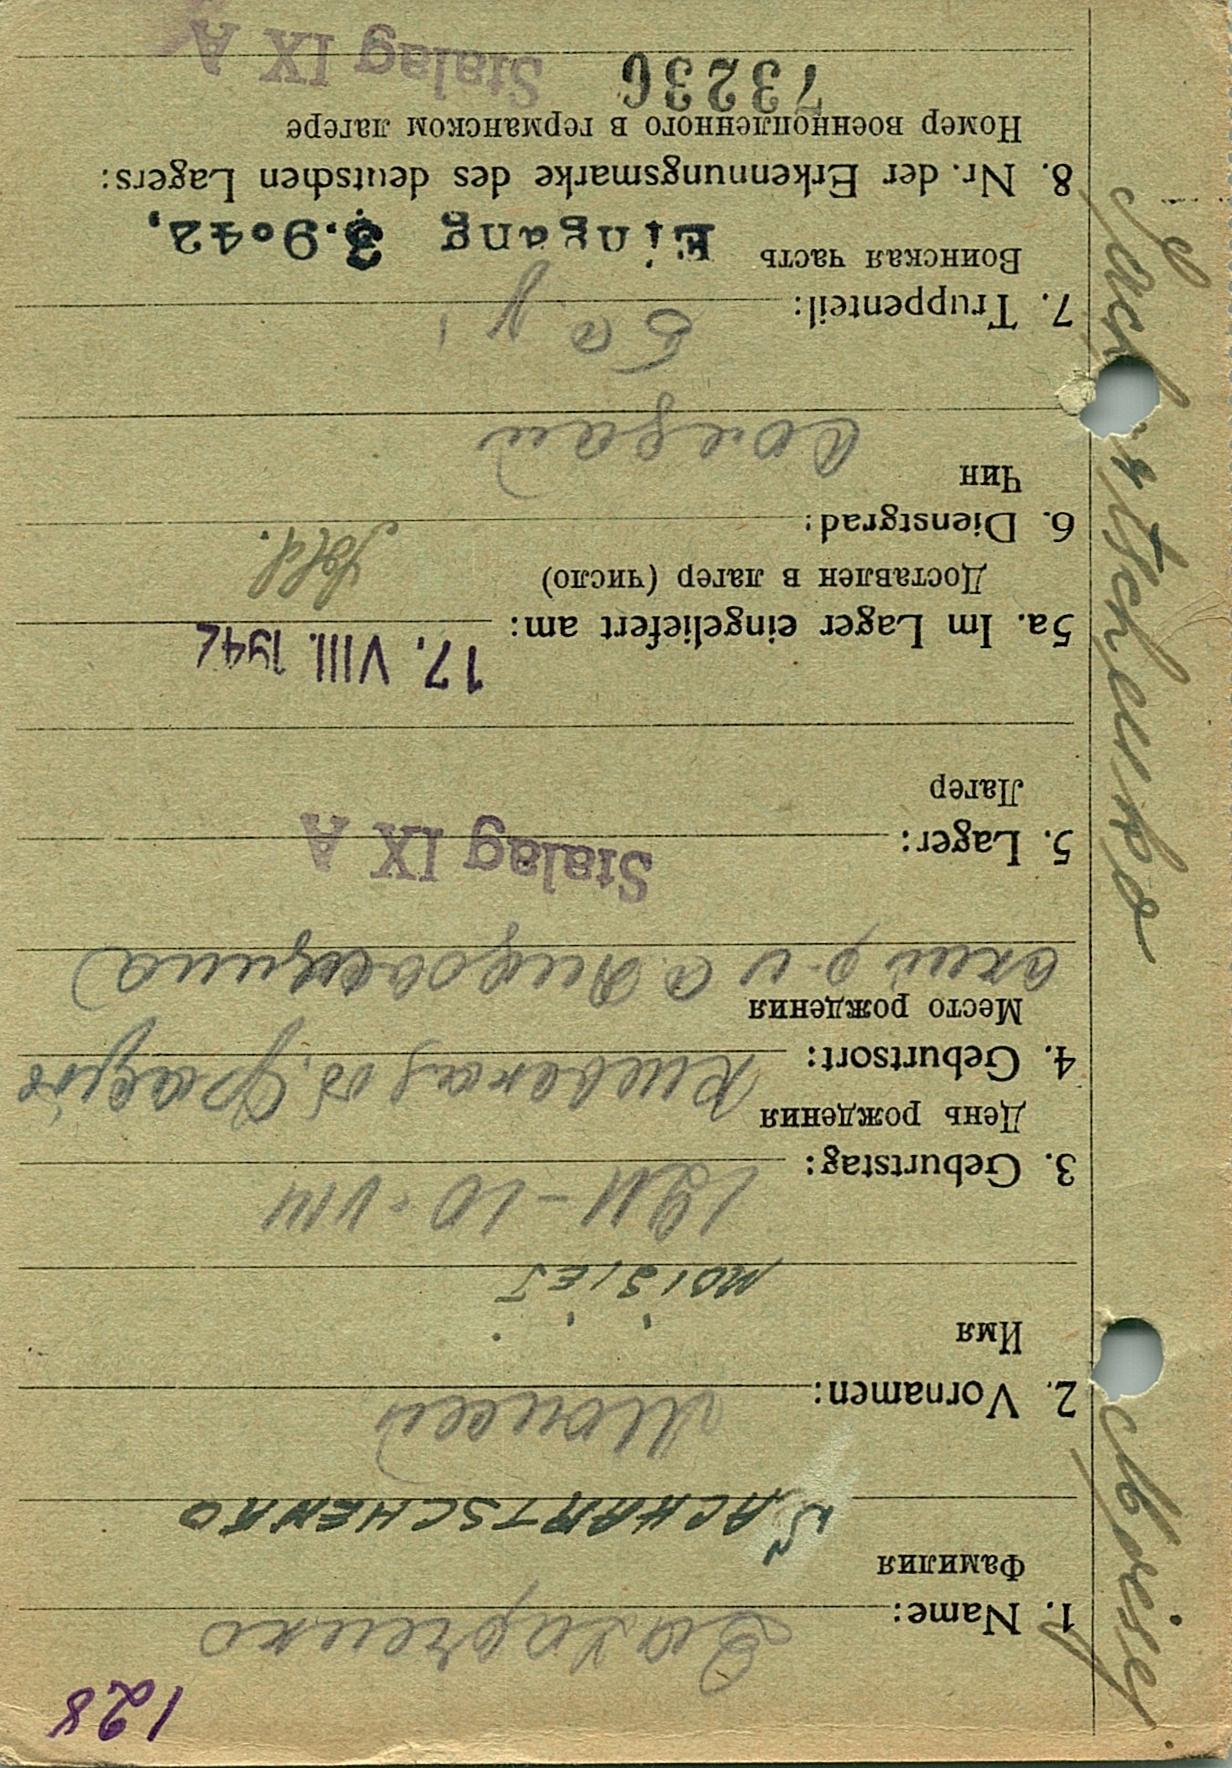 128
1. Name: Захарченко
Фамилия
SACHARTSCHENKO
2. Vornamen: Моисей
Имя
MOISIEJ
3. Geburtstag: 1911-10-VIII
День рождения
4. Geburtsort: Киевская об.
Место рождения
ский р-н с.
5. Lager: Stalag IX A
Лагер
5a. Im Lager eingeliefert am: 17. VIII. 1942
Доставлен в лагер (число)
6. Dienstgrad: Sold.
Чин
солдат
7. Truppenteil:
Воинская часть Eingang 3.9.42,
8. Nr. der Erkennungsmarke des deutschen Lagers:
Номер военнопленного в германском лагере
73236 Stalag IX A
Sachartschenko Moisey